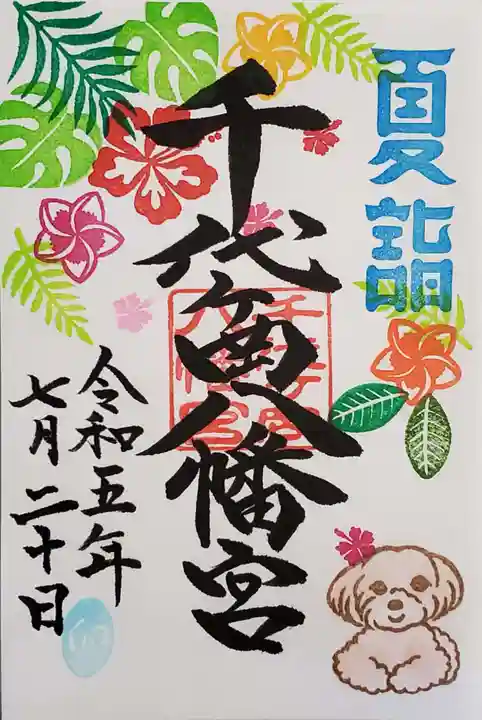 夏詣
千代ヶ岡八幡宮
令和五年
七月二十日